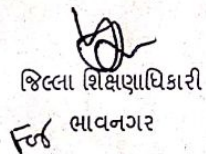 જિલ્લા શિક્ષણાધિકારી
For ભાવનગર